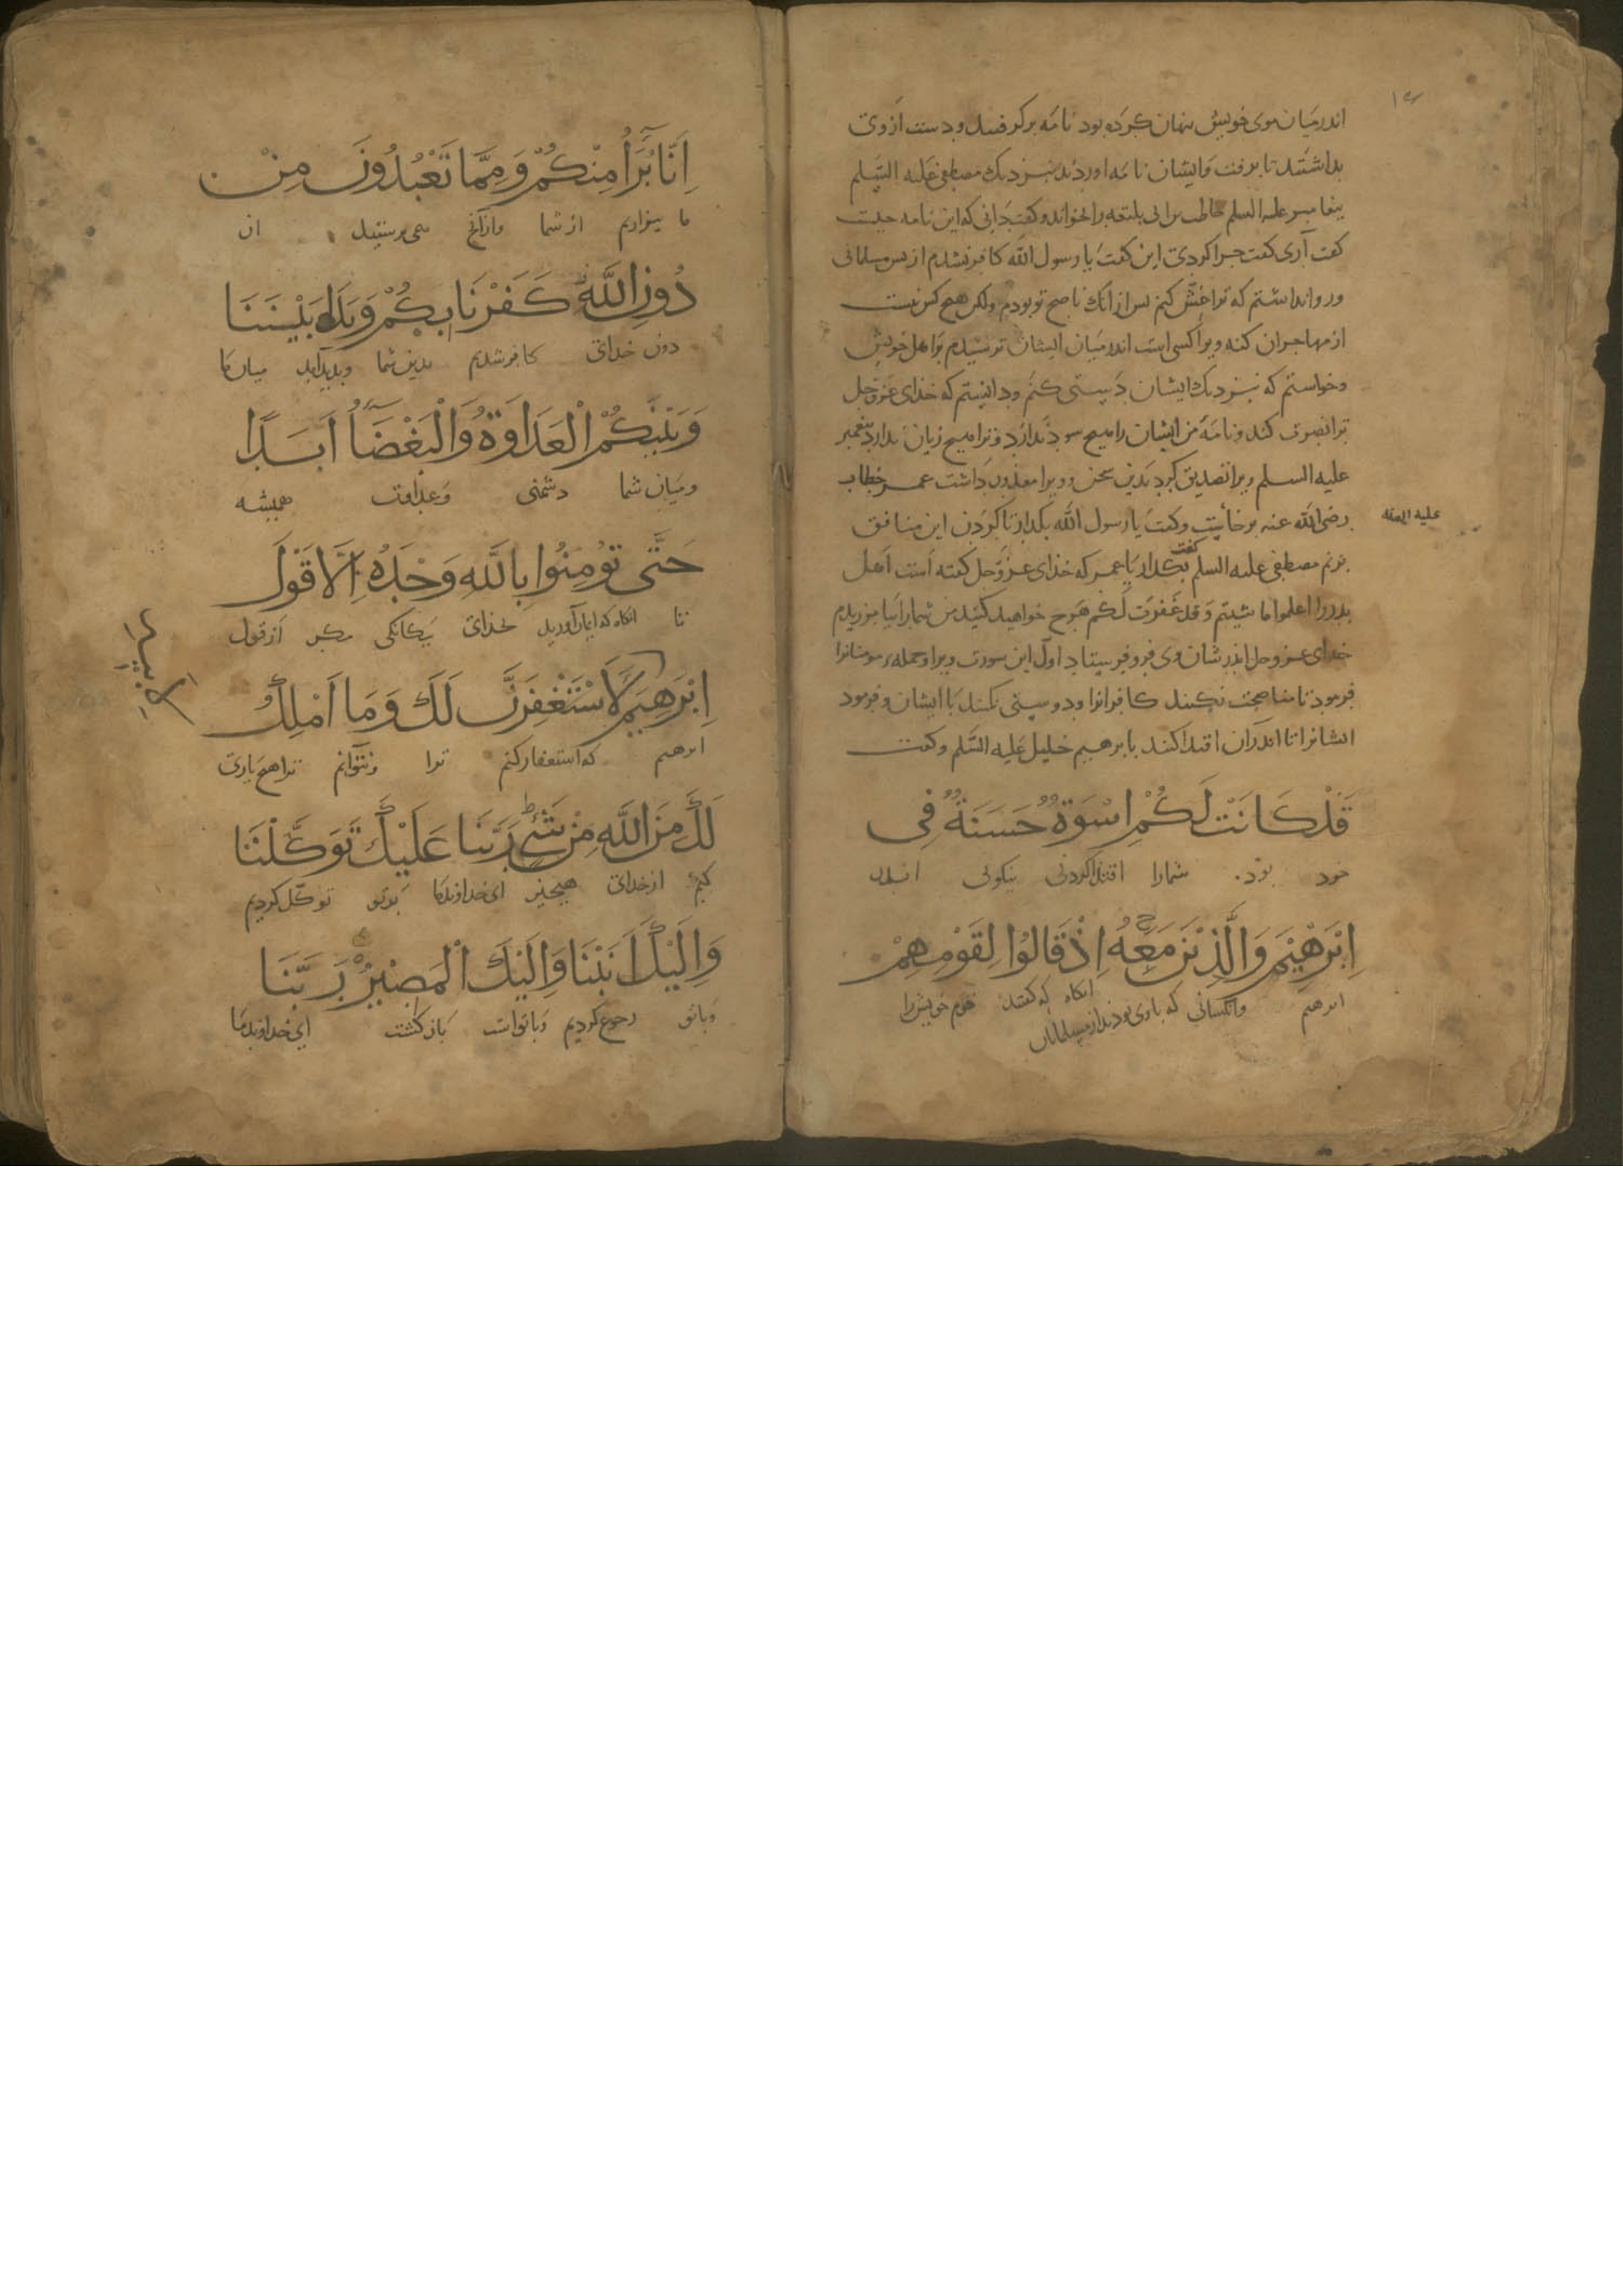 اندر میان موی خویش پنهان کرده بود نامه برگرفتند و دست از وی
بداشتند تا برفت و ایشان نامه اوردند بنزدیک مصطفی علیه السلم
پیغامبر علیه السلم حاطب بن ابی بلتعه را بخواند و کفت دانی که این نامه چیست
کفت آری کفت چرا کردی این کفت یا رسول الله کافر نشدم از پس مسلمانی
و روا نداشتم که ترا غش کنم پس از انک ناصح تو بودم ولکن هیچ کس نیست
از مهاجران که نه ویرا کسی است اندر میان ایشان ترسیدم بر اهل خویش
و خواستم که بنزدیک ایشان دستی کنم و دانستم که خدای عز و جل
ترا نصرت کند و نامه من ایشان را هیچ سود ندارد و ترا هیچ زیان ندارد پیغمبر
علیه السلم ویرا تصدیق کرد بدین سخن و ویرا معذور داشت عمر خطاب
رضی الله عنه بر خاست و کفت یا رسول الله بکذار تا کردن این منافق
علیه
بزنم مصطفی علیه السلم کفت بکذار یا عمر که خدای عز و جل کفته است اهل
بدر را اعلموا ما شیتم و قد غفرت لکم هرچ خواهید کنید من شما را بیامرزیدم
خدای عز و جل اندر شان وی فرو فرستاد اول این سورت ویرا و جمله مومنانرا
فرمود تا مناصحت نکنند کافرانرا و دوستی نکنند با ایشان و فرمود
ایشانرا تا اندران اقتدا کنند بابرهیم خلیل علیه السلم و کفت
قَدْ كَانَتْ لَكُمْ اِسْوَةٌ حَسَنَةٌ فِی
خود بود شمارا اقتدا کردنی نیکوئی اندر
اِبْرٰهِيْمَ وَالَّذِيْنَ مَعَهُ اِذْ قَالُوْا لِقَوْمِهِمْ
ابرهیم وانکسانی که باوی بودند از مسلمانان انکاه که کفتند قوم خویش را
اِنَّا بُرَآءُ مِنْكُمْ وَمِمَّا تَعْبُدُوْنَ مِنْ
ما بیزاریم از شما وازآنچ می پرستید از
دُوْنِ اللَّهِ كَفَرْنَا بِكُمْ وَبَدَا بَيْنَنَا
دون خدای کافر شدیم بدین شما وبدید آید میان ما
وَبَيْنَكُمُ الْعَدَاوَةُ وَالْبَغْضَآءُ اَبَدًا
ومیان شما دشمنی وعداوت همیشه
حَتَّى تُؤْمِنُوا بِاللَّهِ وَحْدَهُ اِلَّا قَوْلَ
تا انکاه که ایمان آورید بخدای یکانکی مکر از قول
اِبْرٰهِيْمَ لَاَسْتَغْفِرَنَّ لَكَ وَمَا اَمْلِكُ
ابرهیم که استغفار کنم ترا ونتوانم ترا هیچ یاری
لَكَ مِنَ اللَّهِ مِنْ شَيْءٍ رَبَّنَا عَلَيْكَ تَوَكَّلْنَا
کنم از خدای هیچ چیز ای خداوند ما بر تو توکل کردیم
وَاِلَيْكَ اَنَبْنَا وَاِلَيْكَ الْمَصِيْرُ رَبَّنَا
وباتو رجوع کردیم وباتو است بازکشت ای خداوند ما